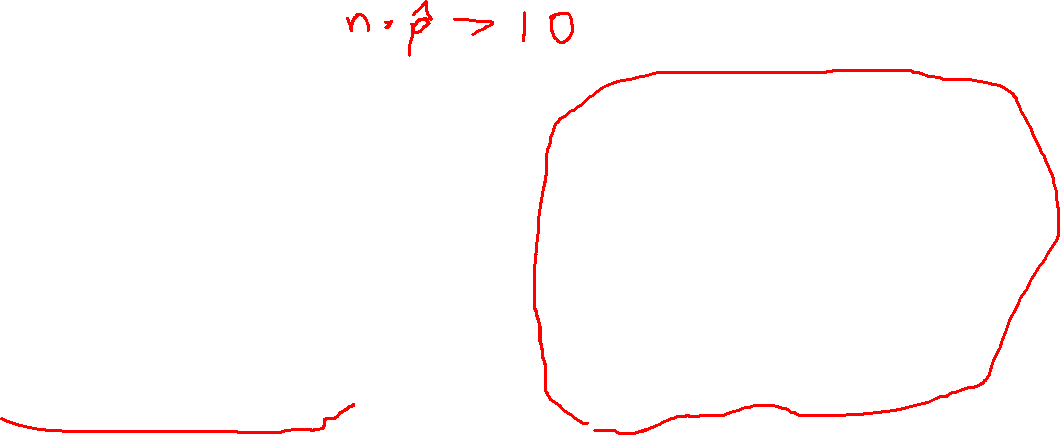 n · p̂ > 10